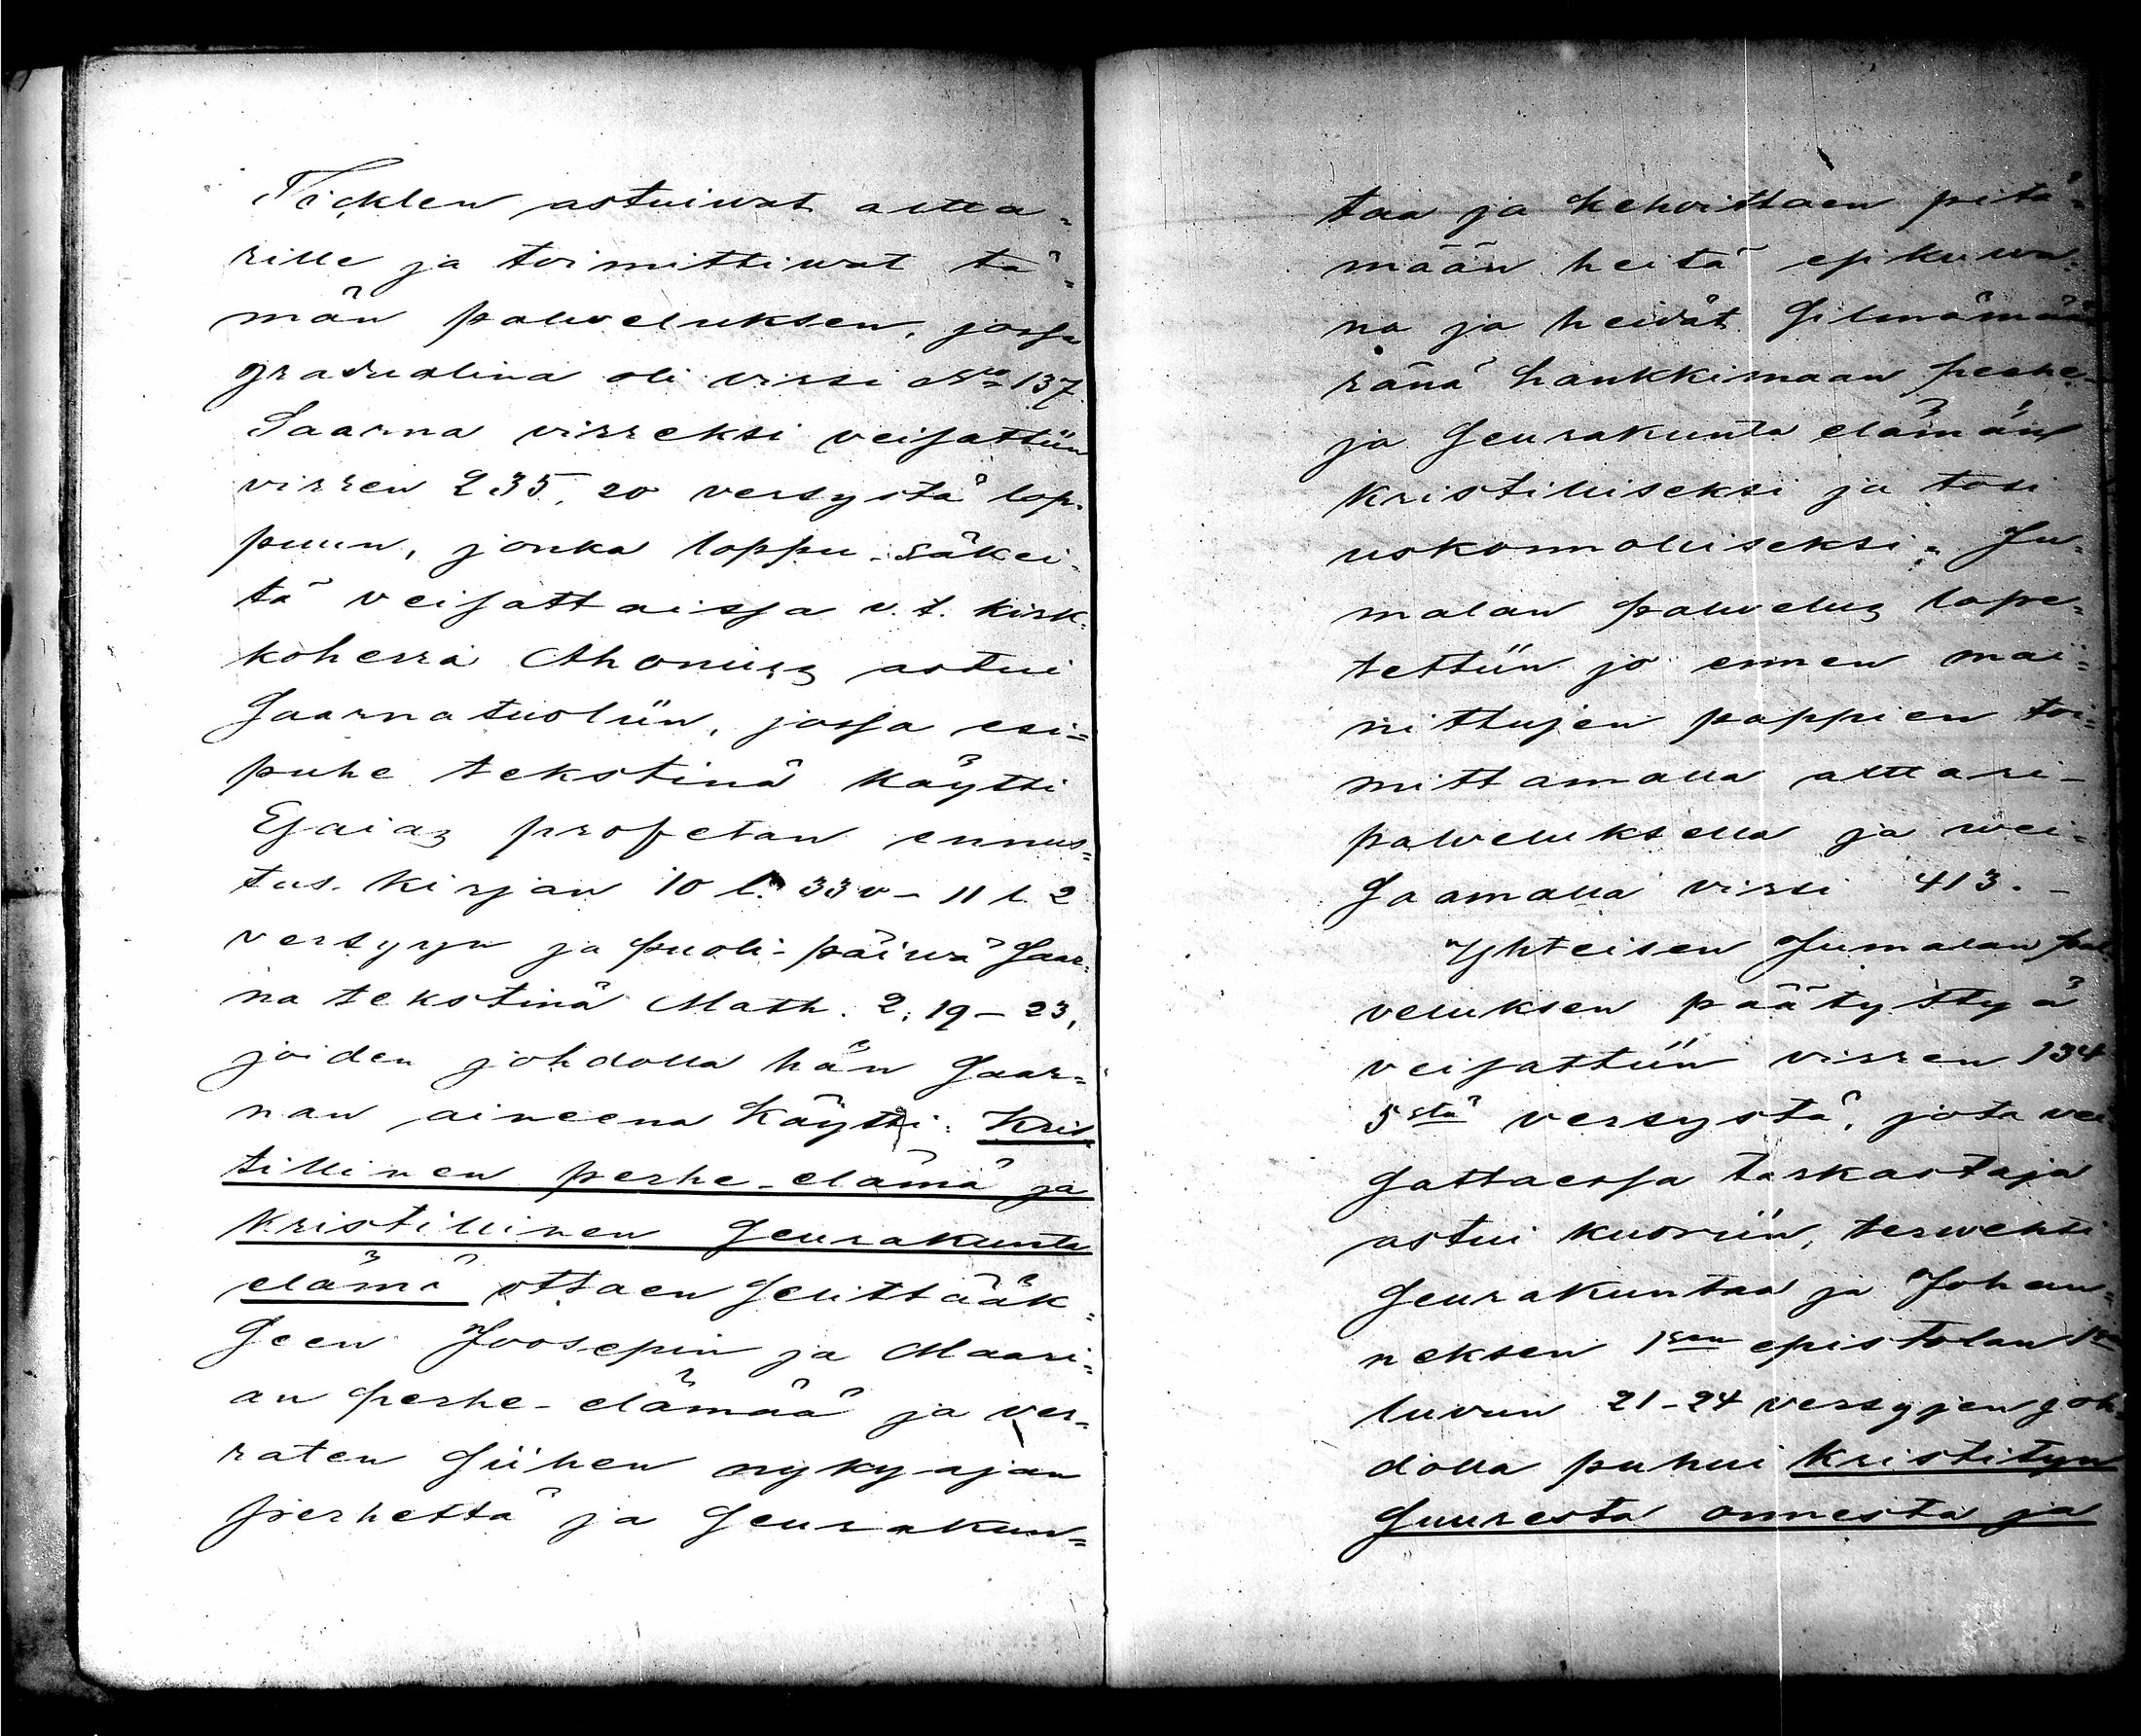 Ticklen astuiwat altta=
rille ja toimittiwat tä=
män palweluksen, jossa
gradualina oli virsi No 137.
Saarna virreksi veisattiin
virren 235, 20 versystä lop=
puun, jonka loppu-säkei=
tä veisattaissa v.t. kirk=
koherra Ahonius astui
saarnatuoliin, jossa esi=
puhe tekstinä käytti
Esaias profetan ennus=
tus-kirjan 10 l. 33 v - 11 l. 2
versyyn ja puoli-päiwä saar=
na tekstinä Math. 2: 19-23,
joiden johdolla hän saar=
nan aineena käytti: Kris
tillinen perhe-elämä ja
kristillinen seurakunta
elämä ottaen selittääk=
seen Joosepin ja Maari=
an perhe-elämää ja ver=
raten siihen nykyajan
perhettä ja seurakun=
taa ja kehoittaen pitä=
mään heitä esikuwa=
na ja heidät silmämää
ränä hankkimaan perhe-
ja seurakunta elämän
kristilliseksi ja tosi
uskonnolliseksi. Ju=
malan palwelus lope=
tettiin jo ennen mai=
nittujen pappien toi=
mittamalla alttari-
palweluksella ja wei=
saamalla virsi 413. -
Yhteisen Jumalan pal=
veluksen päätyttyä
veisattiin virren 134
5stä versystä, jota vei=
sattaessa tarkastaja
astui kuoriin, terwehti
seurakuntaa ja Johan=
neksen 1sen epistolan
luvun 21-24 versyjen joh=
dolla puhui kristityn
suuresta onnesta ja